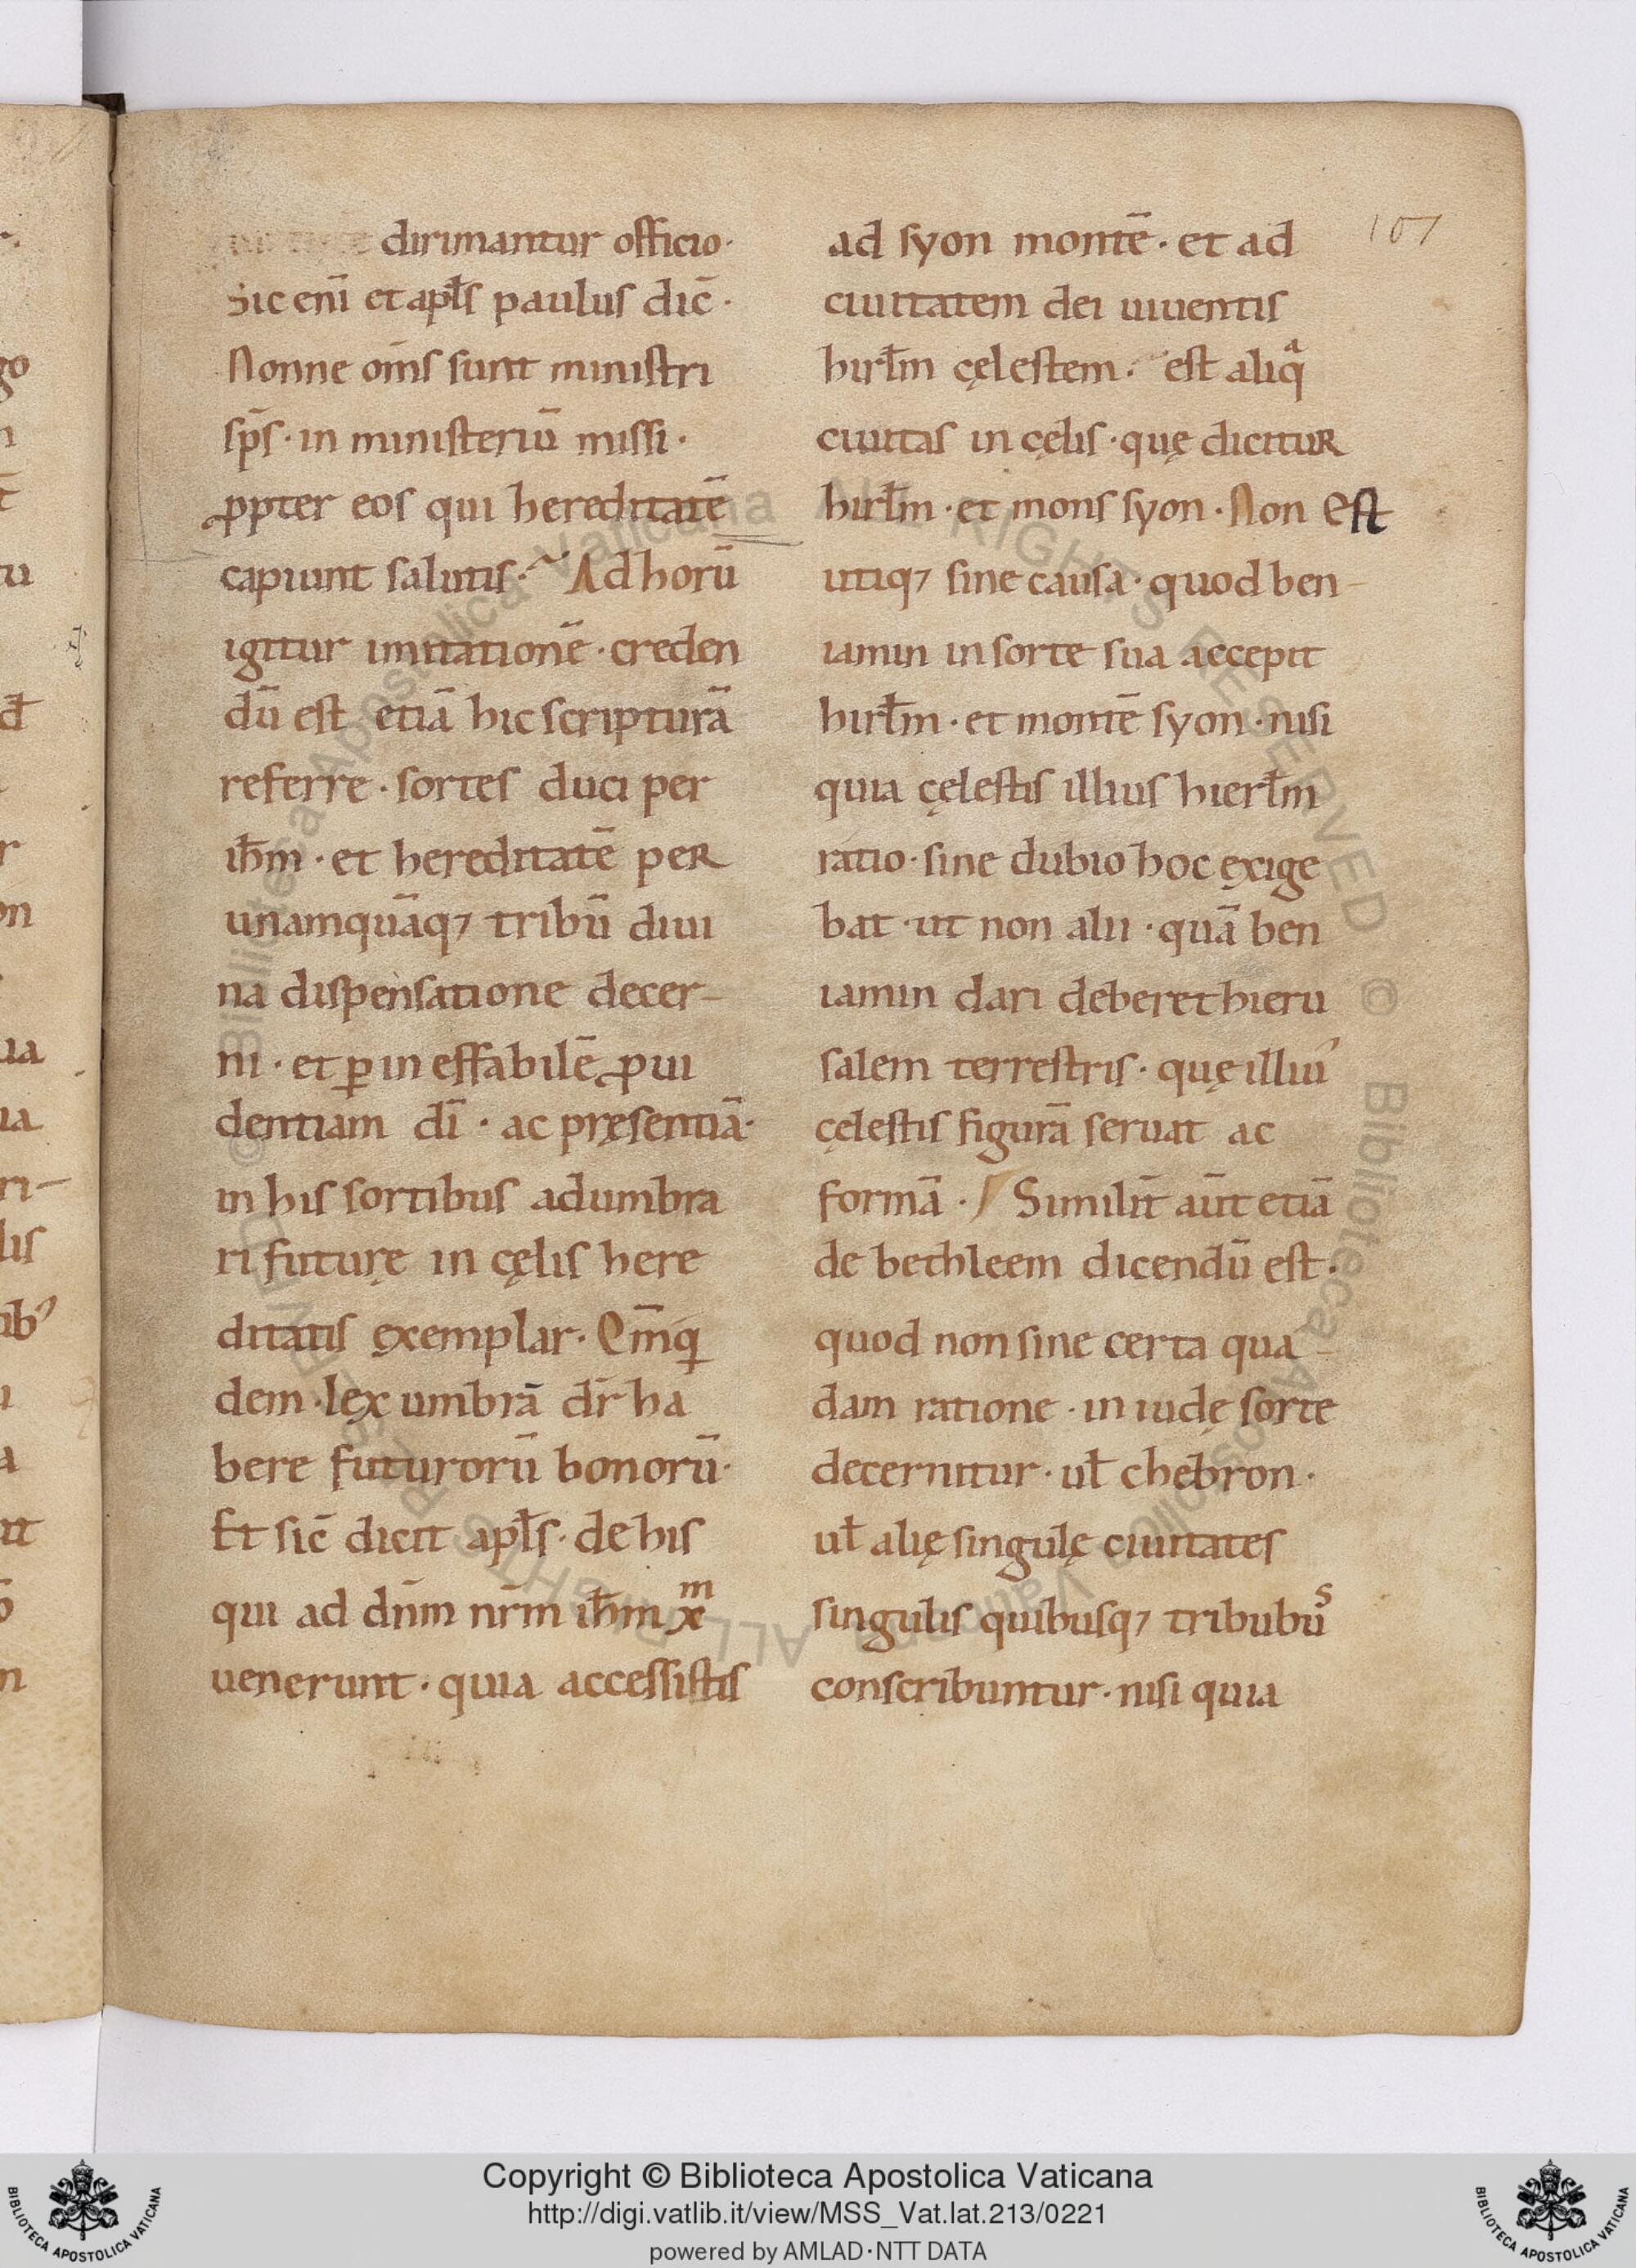 dirimantur officio·
Sic eni̅ et apl̅s paulus dic̅·
Nonne om̅s sunt ministri
sp̅s· in ministeriu̅ missi·
ꝓpter eos qui hereditate̅
capiunt salutis· Ad horu̅
igitur imitatione̅· creden
du̅ est etia̅ hic scriptura̅
referre· sortes duci per
ih̅m· et hereditate̅ per
unamqua̅q; tribu̅ diui
na dispensatione decer-
ni· et ꝑ in effabile̅ ꝓui
dentiam di̅· ac pręsentia̅·
in his sortibus adumbra
ri futurę in cęlis here
ditatis exemplar· Em̅q̇
dem· lex umbra̅ dr̅ ha
bere futuroru̅ bonoru̅·
Et sic̅ dicit apl̅s· de his
qui ad dn̅m nr̅m ih̅m xᵐ
uenerunt· quia accessistis
ad syon monte̅· et ad
ciuitatem dei uiuentis
hirl̅m cęlestem· est aliqᵃ
ciuitas in cęlis· quę dicitur
hirl̅m· et mons syon· Non est
utiq; sine causa· quod ben-
iamin in sorte sua accepit
hirl̅m· et monte̅ syon· nisi
quia cęlestis illius hierl̅m
ratio· sine dubio hoc exige
bat· ut non alii· qua̅ ben
iamin dari deberet hieru
salem terrestris· quę illiuʼ
cęlestis figura̅ seruat ac
forma̅· Similit̅ aut̅ etia̅
de bethleem dicendu̅ est·
quod non sine certa qua-
dam ratione· in iudę sorte
decernitur· ul̅ chebron·
ul̅ alię singulę ciuitates
singulis quibusq; tribubuˢ
conscribuntur· nisi quia
107
Copyright © Biblioteca Apostolica Vaticana
http://digi.vatlib.it/view/MSS_Vat.lat.213/0221
powered by AMLAD·NTT DATA
BIBLIOTECA APOSTOLICA VATICANA
BIBLIOTECA APOSTOLICA VATICANA